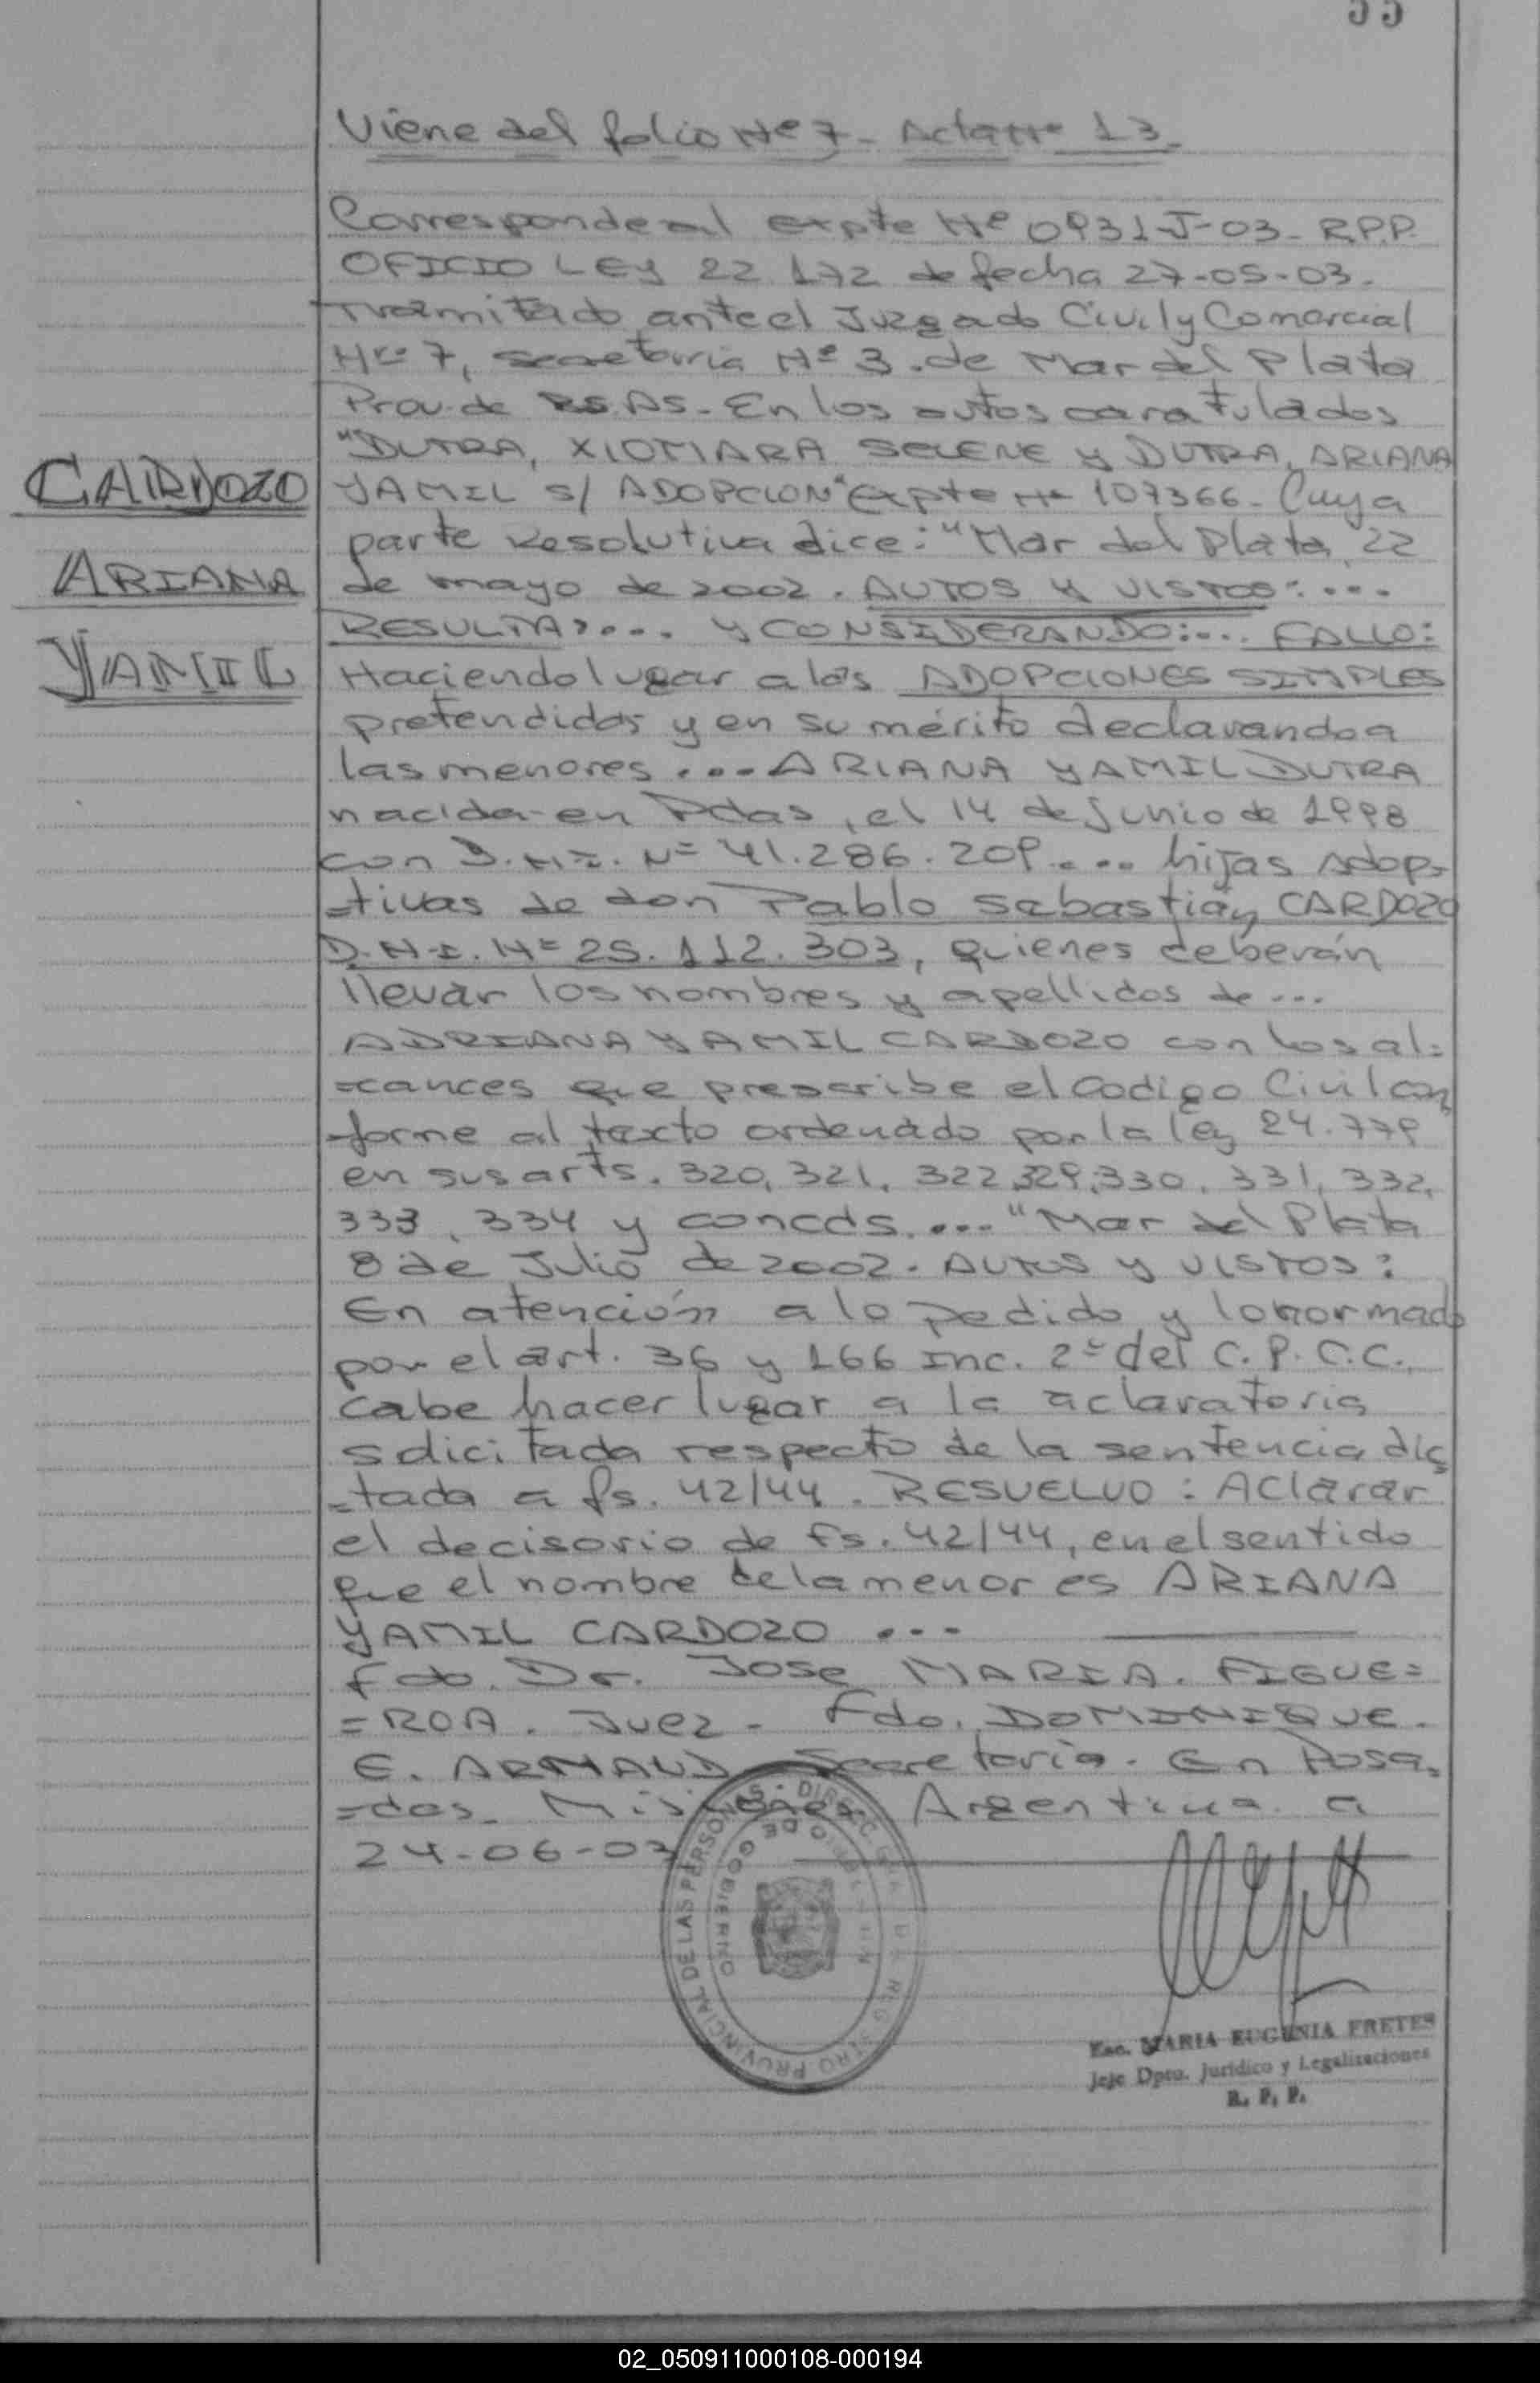 55
Viene del folio Nº 7 - Acta Nº 13.
Corresponde al expte Nº 0931-J-03 - R.P.P.
OFICIO LEY 22.172 de fecha 27-05-03.
Tramitado ante el Juzgado Civil y Comercial
Nro 7, secretaria Nº 3. de Mar del Plata
Prov. de BS. AS. - En los autos caratulados
"DUTRA, XIOMARA SELENE y DUTRA, ARIANA
CARDOZO
YAMIL S/ ADOPCION" Expte Nº 107366 - Cuya
parte Resolutiva dice: "Mar del Plata, 22
ARIANA
de mayo de 2002. AUTOS Y VISTOS: ...
RESULTA: ... Y CONSIDERANDO: ... FALLO:
YAMIL
Haciendo lugar a las ADOPCIONES SIMPLES
pretendidas y en su mérito declarando a
las menores .... ARIANA YAMIL DUTRA
nacida en Pdas, el 14 de Junio de 1998
con D.N.I. Nº 41.286.209 .... hijas Adop-
=tivas de don Pablo Sebastián CARDOZO
D.N.I. Nº 25.112.303, quienes deberán
llevar los nombres y apellidos de ...
ADRIANA YAMIL CARDOZO con los al=
=cances que prescribe el Codigo Civil con
forme al texto ordenado por la ley 24.779
en sus arts. 320, 321, 322, 329, 330, 331, 332,
333, 334 y concds. ... "Mar del Plata
8 de Julio de 2002. AUTOS y VISTOS:
En atención a lo pedido y lo normado
por el art. 36 y 166 Inc. 2º del C.P.C.C.,
cabe hacer lugar a la aclaratoria
solicitada respecto de la sentencia dic
=tada a fs. 42/44. RESUELVO: Aclarar
el decisorio de fs. 42/44, en el sentido
que el nombre de la menor es ARIANA
YAMIL CARDOZO ...
fdo. Dr. Jose MARIA. FIGUE=
=ROA. Juez - Fdo. DOMINIQUE.
E. ARNAUD Secretaria. En Posa=
=das Misiones Argentina a
24-06-03
DIREC. GRAL DEL REGISTRO PROVINCIAL DE LAS PERSONAS
DE GOBIERNO
Esc. MARIA EUGENIA FRETES
Jefe Dpto. Jurídico y Legalizaciones
R. P. P.
02_050911000108-000194